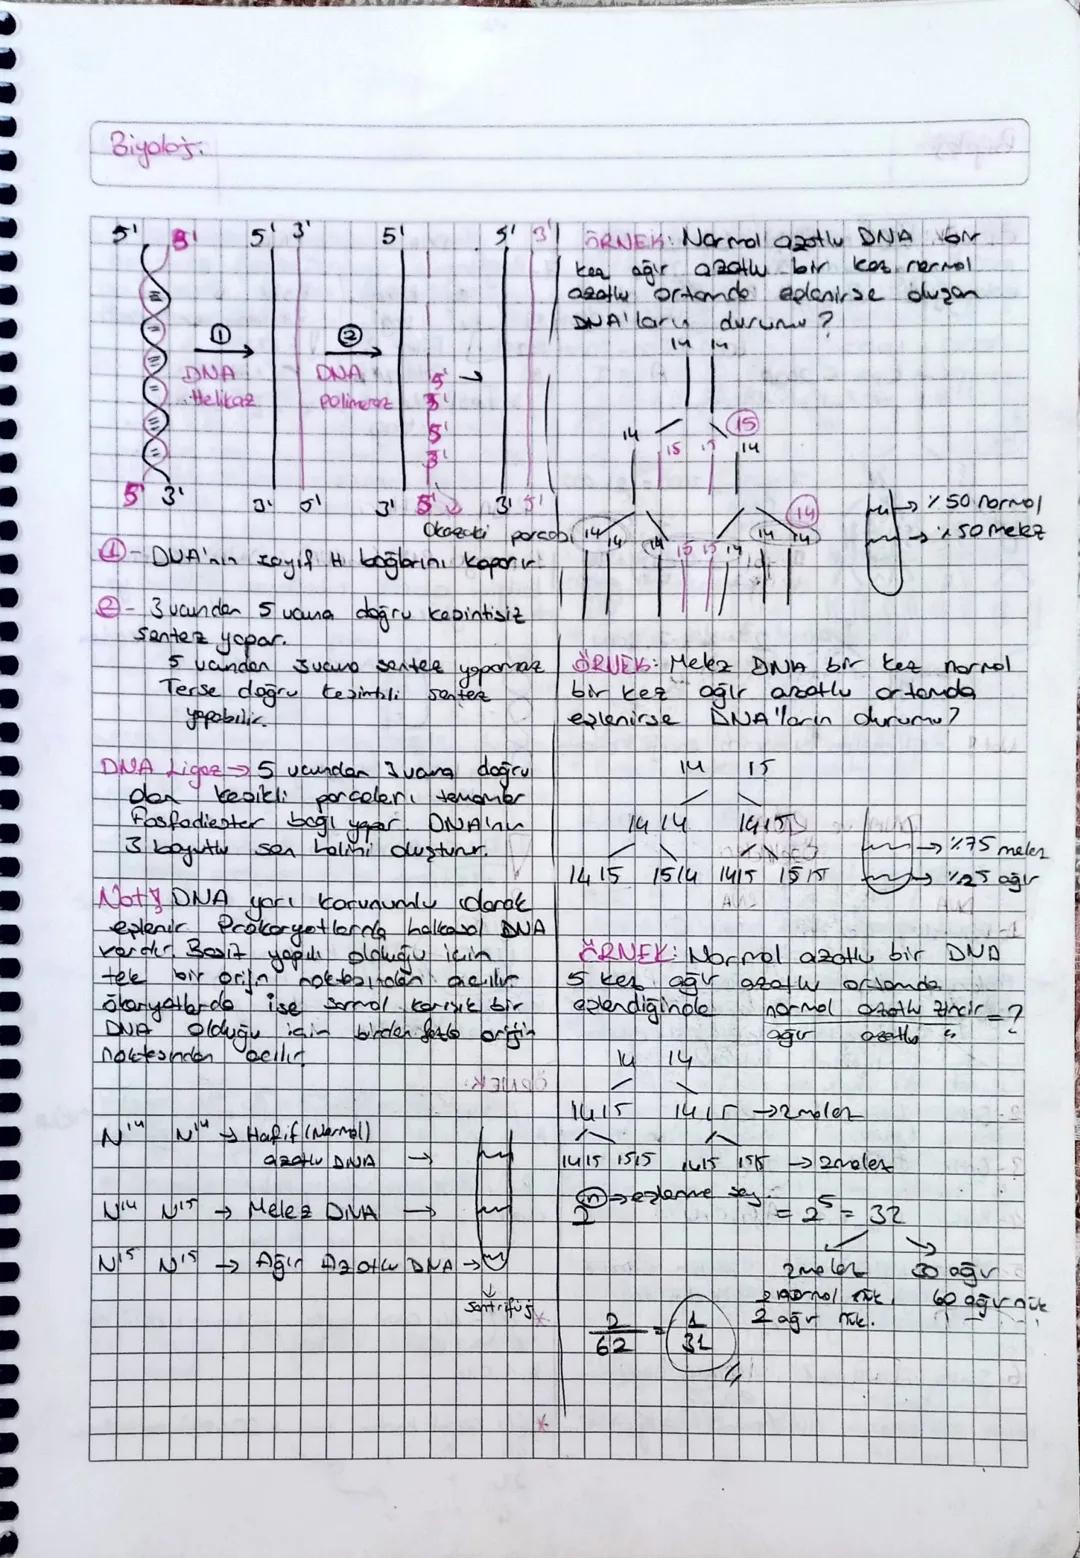 Biyoloji
5' 3' 5' 3' 5' 5' 3'
① ②
DNA Helikaz
DNA polimeraz
5'
3'
5'
3'
5' 3' 3' 5' 3' 5' 3' 5'
Okazaki parçası
① - DNA'nın zayıf H bağlarını koparır.
② - 3 ucundan 5 ucuna doğru kesintisiz
sentez yapar.
5 ucundan 3 ucuna sentez yapamaz
Terse doğru kesintili sentez
yapabilir.
DNA Ligaz → 5 ucundan 3 ucuna doğru
olan kesikli parçaları tamamlar
Fosfodiester bağı yapar. DNA'nın
3 boyutlu son halini oluşturur.
Not: DNA yarı korunumlu olarak
eşlenir. Prokaryotlarda halkasal DNA
vardır. Basit yapılı olduğu için
tek bir orijin noktasından açılır
ökaryotlarda ise sarmal karışık bir
DNA olduğu için birden fazla orijin
noktasından açılır.
N14 N14 → Hafif (Normal)
azotlu DNA →
N14 N15 → Melez DNA →
N15 N15 → Ağır Azotlu DNA →
santrifüj
ÖRNEK: Normal azotlu DNA bir
kez ağır azotlu bir kez normal
azotlu ortamda eşlenirse oluşan
DNA'ların durumu?
14 14
15
14 15 15 14
14
14 14 14 15 15 14 14 14
→ %50 normal
→ %50 melez
ÖRNEK: Melez DNA bir kez normal
bir kez ağır azotlu ortamda
eşlenirse DNA'ların durumu?
14 15
14 14 14 15
14 15 15 14 14 15 15 15
→ %75 melez
→ %25 ağır
ÖRNEK: Normal azotlu bir DNA
5 kez ağır azotlu ortamda
eşlendiğinde normal azotlu zincir = ?
ağır azotlu "
14 14
14 15 14 15 → 2 melez
14 15 15 15 14 15 15 15 → 2 melez
2 n → eşlenme say. = 2^5 = 32
2 melez 30 ağır
2 normal nük. 60 ağır nük
2 ağır nük.
2/62 = 1/31